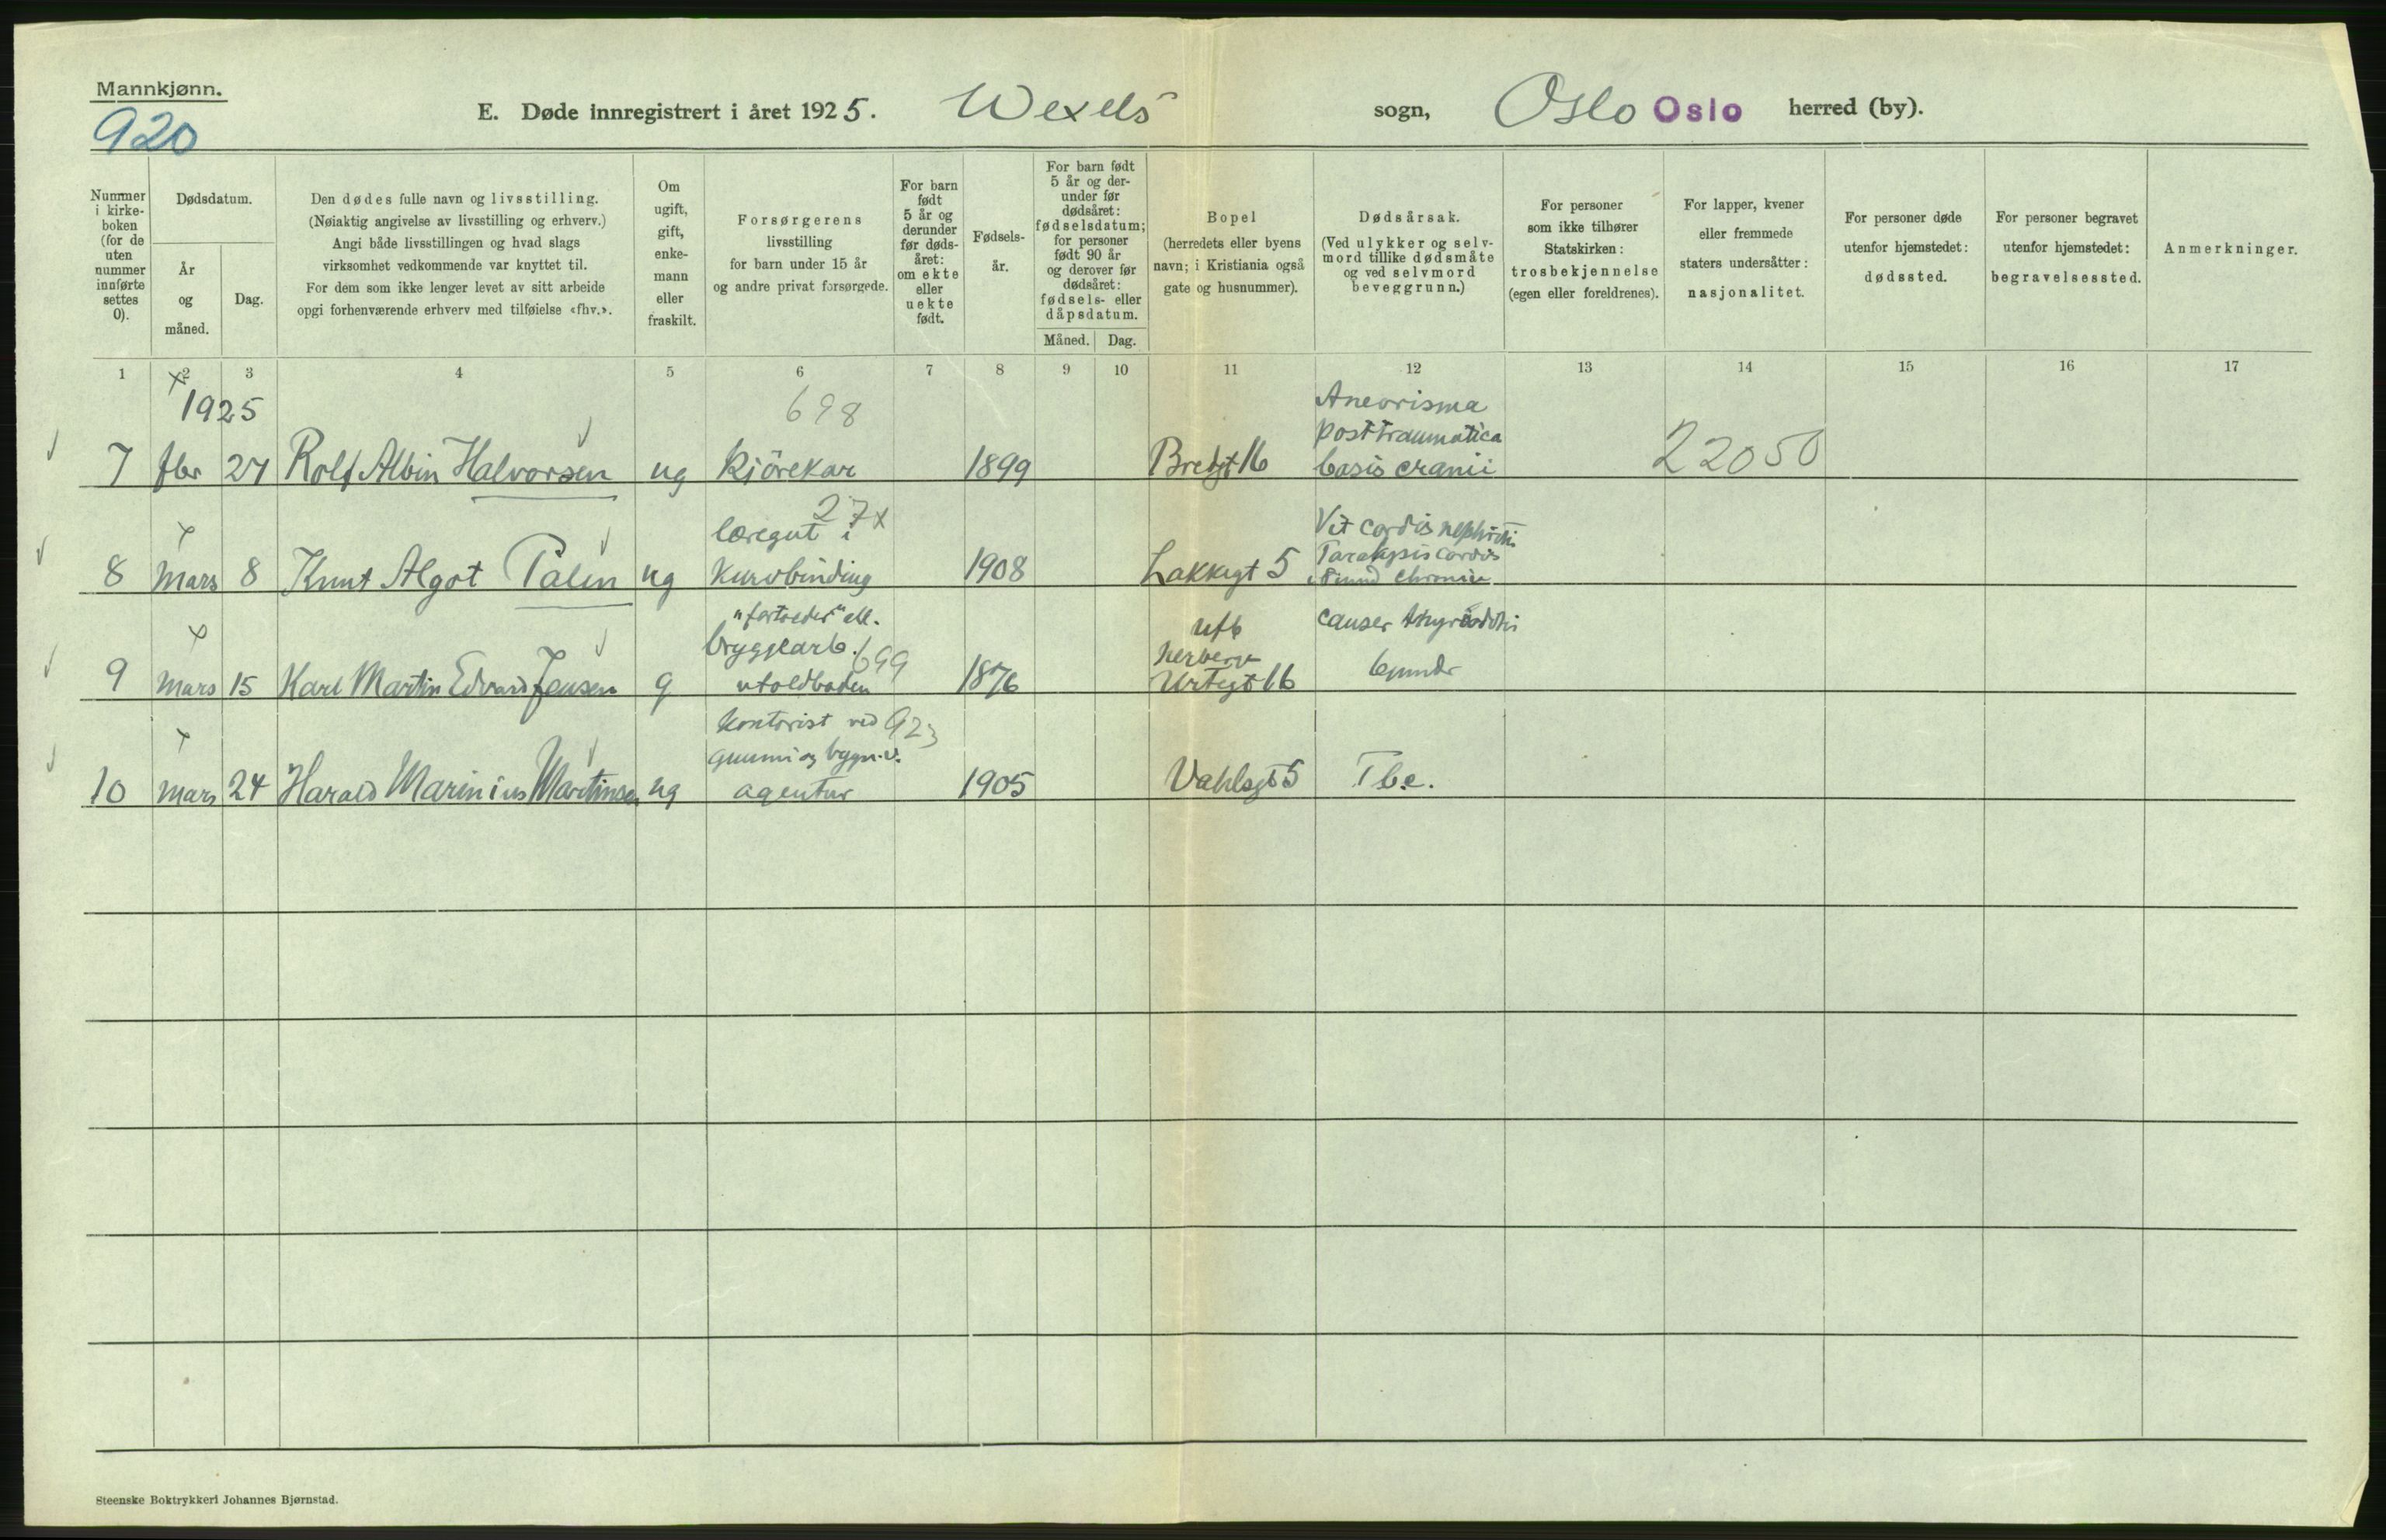 Mannkjønn.
920
E. Døde innregistrert i året 1925. Wexels sogn, Oslo Oslo herred (by).
Nummer i kirke-boken (for de uten nummer innførte settes 0).
Dødsdatum.
År og måned.
Dag.
Den dødes fulle navn og livsstilling.
(Nøiaktig angivelse av livsstilling og erhverv.)
Angi både livsstillingen og hvad slags
virksomhet vedkommende var knyttet til.
For dem som ikke lenger levet av sitt arbeide
opgi forhenværende erhverv med tilføielse «fhv.».
Om ugift, gift, enke-mann eller fraskilt.
Forsørgerens
livsstilling
for barn under 15 år
og andre privat forsørgede.
For barn født 5 år og derunder før døds-året: om ekte eller uekte født.
Fødsels-år.
For barn født 5 år og der-under før dødsåret: fødselsdatum; for personer født 90 år og derover før dødsåret: fødsels- eller dåpsdatum.
Måned. Dag.
Bopel
(herredets eller byens
navn; i Kristiania også
gate og husnummer).
Dødsårsak.
(Ved ulykker og selv-
mord tillike dødsmåte
og ved selvmord
beveggrunn.)
For personer
som ikke tilhører
Statskirken:
trosbekjennelse
(egen eller foreldrenes).
For lapper, kvener
eller fremmede
staters undersåtter:
nasjonalitet.
For personer døde
utenfor hjemstedet:
dødssted.
For personer begravet
utenfor hjemstedet:
begravelsessted.
Anmerkninger.
1 2 3 4 5 6 7 8 9 10 11 12 13 14 15 16 17
1925
698
Aneorisma
posttraumatica
7 fbr 27 Rolf Albin Halvorsen ug Kjörekar 1899 Bredgt 16 basis cranii 22050
27x
læregut i
Vit cordis
Paralysis cordis
8 Mars 8 Knut Algot Palin ug Kurvbinding 1908 Lakkegt 5
bryggearb. 699
9 Mars 15 Karl Martin Edvard Jensen g 1876 Urtegt 16
Kontorist ved 923
gummi og
10 Mars 24 Harald Marinius Martinsen ug agentur 1905 Vahlsgt 5 Tbc.
Steenske Boktrykkeri Johannes Bjørnstad.